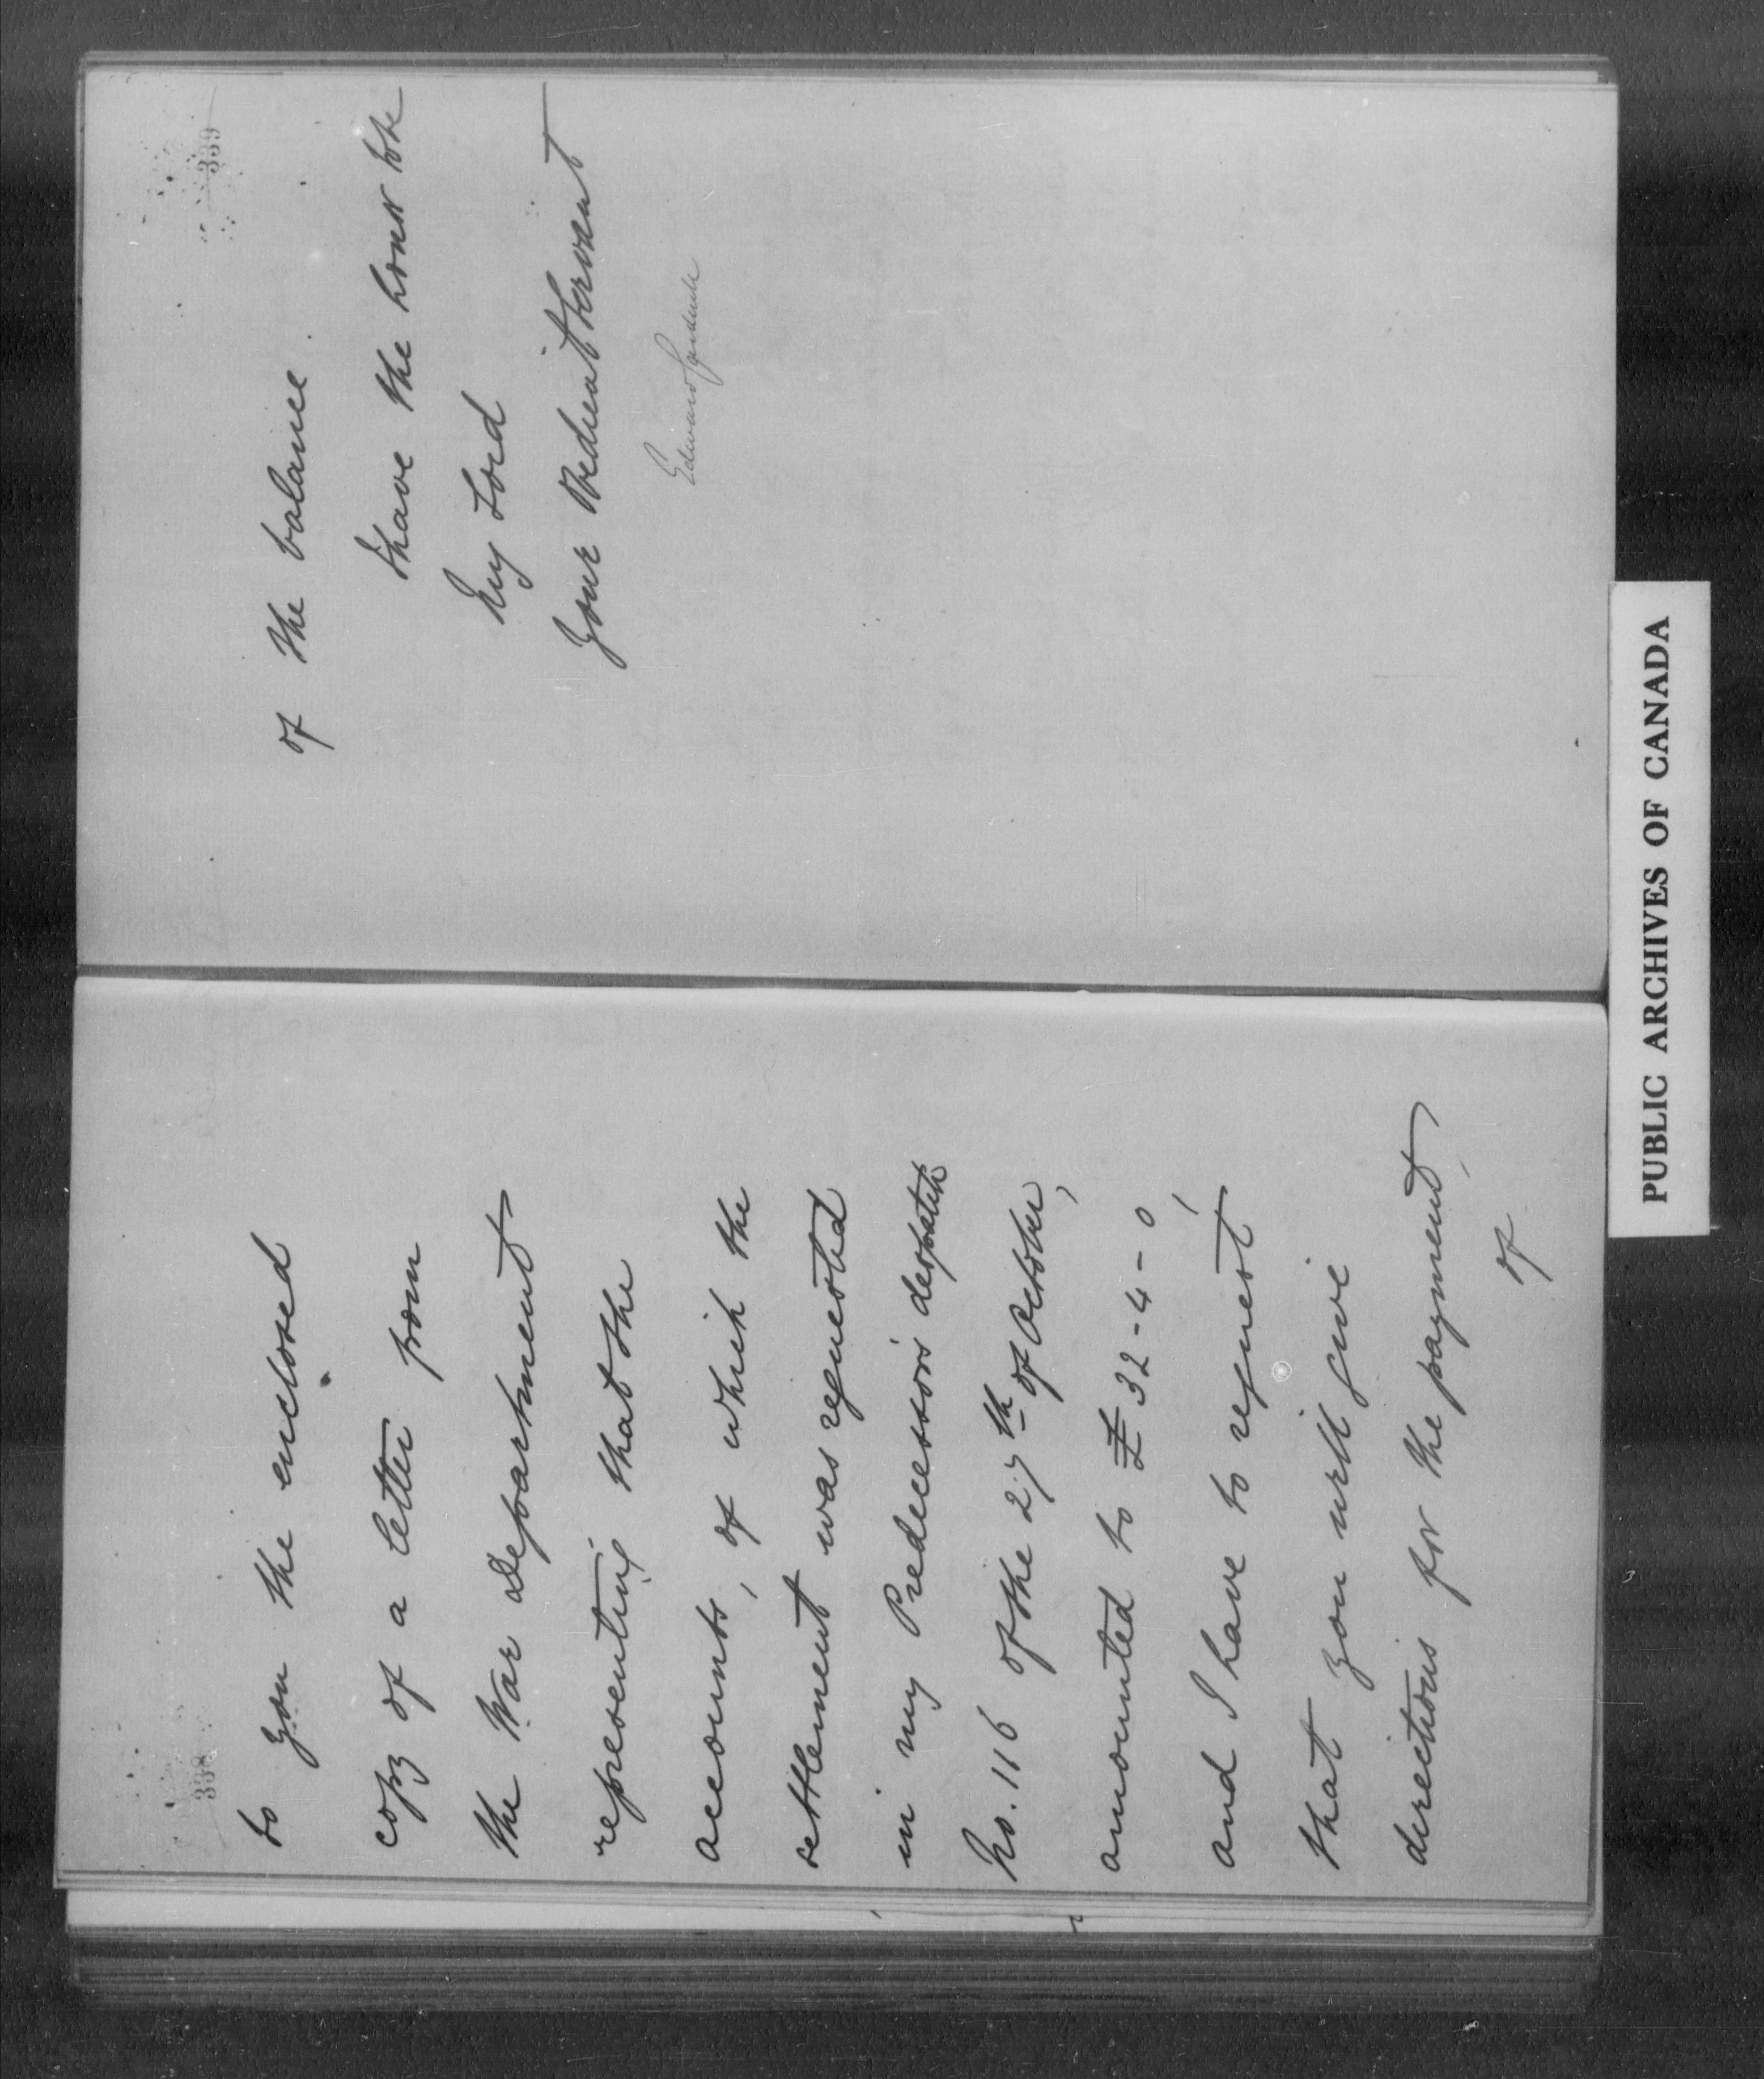 338
to you the enclosed
copy of a letter from
the War Department
representing that the
accounts, of which the
settlement was requested
in my Predecessor's despatch
No. 116 of the 27th of October,
amounted to £32-4-0,
and I have to request
that you will give
directions for the payment
of
339
of the balance.
I have the honor to be
My Lord
Your Obedient Servant
Edward Cardwell
PUBLIC ARCHIVES OF CANADA